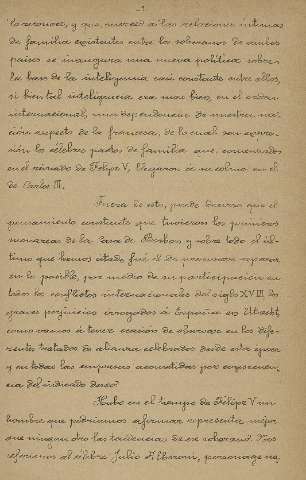 la reconoce, y que, merced á las relaciones íntimas
de familia existentes entre los soberanos de ambos
países se inaugura una nueva política sobre
la base de la inteligencia casi constante entre ellos,
si bien tal inteligencia era mas bien, en el orden
internacional, una dependencia de nuestra na-
ción respecto de la francesa, de lo cual son expre-
sión los célebres pactos de familia que, comenzados
en el reinado de Felipe V, llegaron á su colmo en el
de Carlos III.
Fuera de esto, puede decirse que el
pensamiento constante que tuvieron los primeros
monarcas de la Casa de Borbón y sobre todo el úl-
timo que hemos citado, fué el de procurar reparar
en lo posible, por medio de su participación en
todos los conflictos internacionales del siglo XVIII los
graves perjuicios irrogados á España en Utrecht,
como vamos á tener ocasión de observar en los dife-
rentes tratados de alianza celebrados desde esta época
y en todas las empresas acometidas por consecuen-
cia del indicado deseo.
Hubo en el tiempo de Felipe V un
hombre que podríamos afirmar representa mejor
que ningun otro las tendencias de ese soberano. Nos
referimos al célebre Julio Alberoni, personage na-